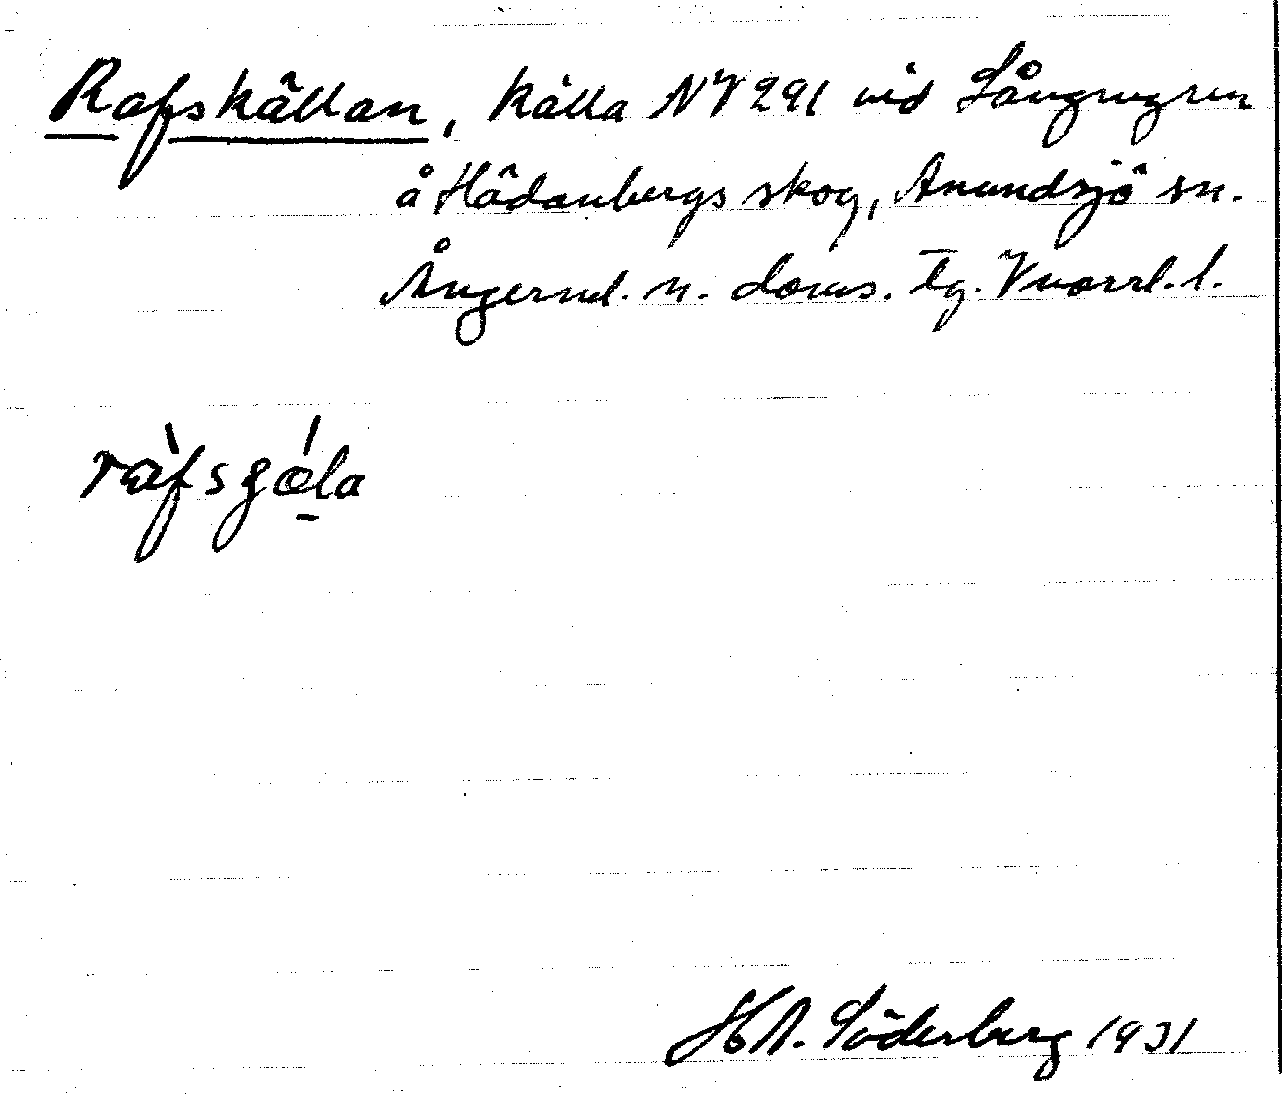 Rafskällan, källa NV 291 vid Långmyren
å Hädanbergs skog, Anundsjö sn.
Ångerml. n. doms. tg. Västernorrl. l.
ràfsgǽla
HA. Söderberg 1931